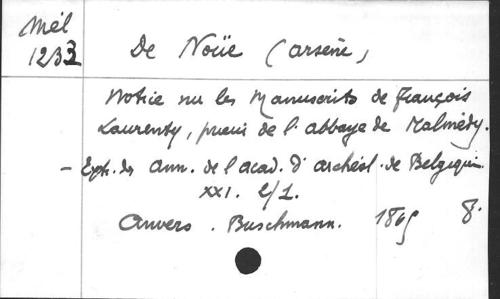 Mél
1233
De Noüe (Arsène)
Notice sur les Manuscrits de François
Laurenty, prieur de l'abbaye de Malmédy.
- Extr. des Ann. de l'acad. d'archéol. de Belgique.
XXI. 2/1.
Anvers. Buschmann. 1865 8.